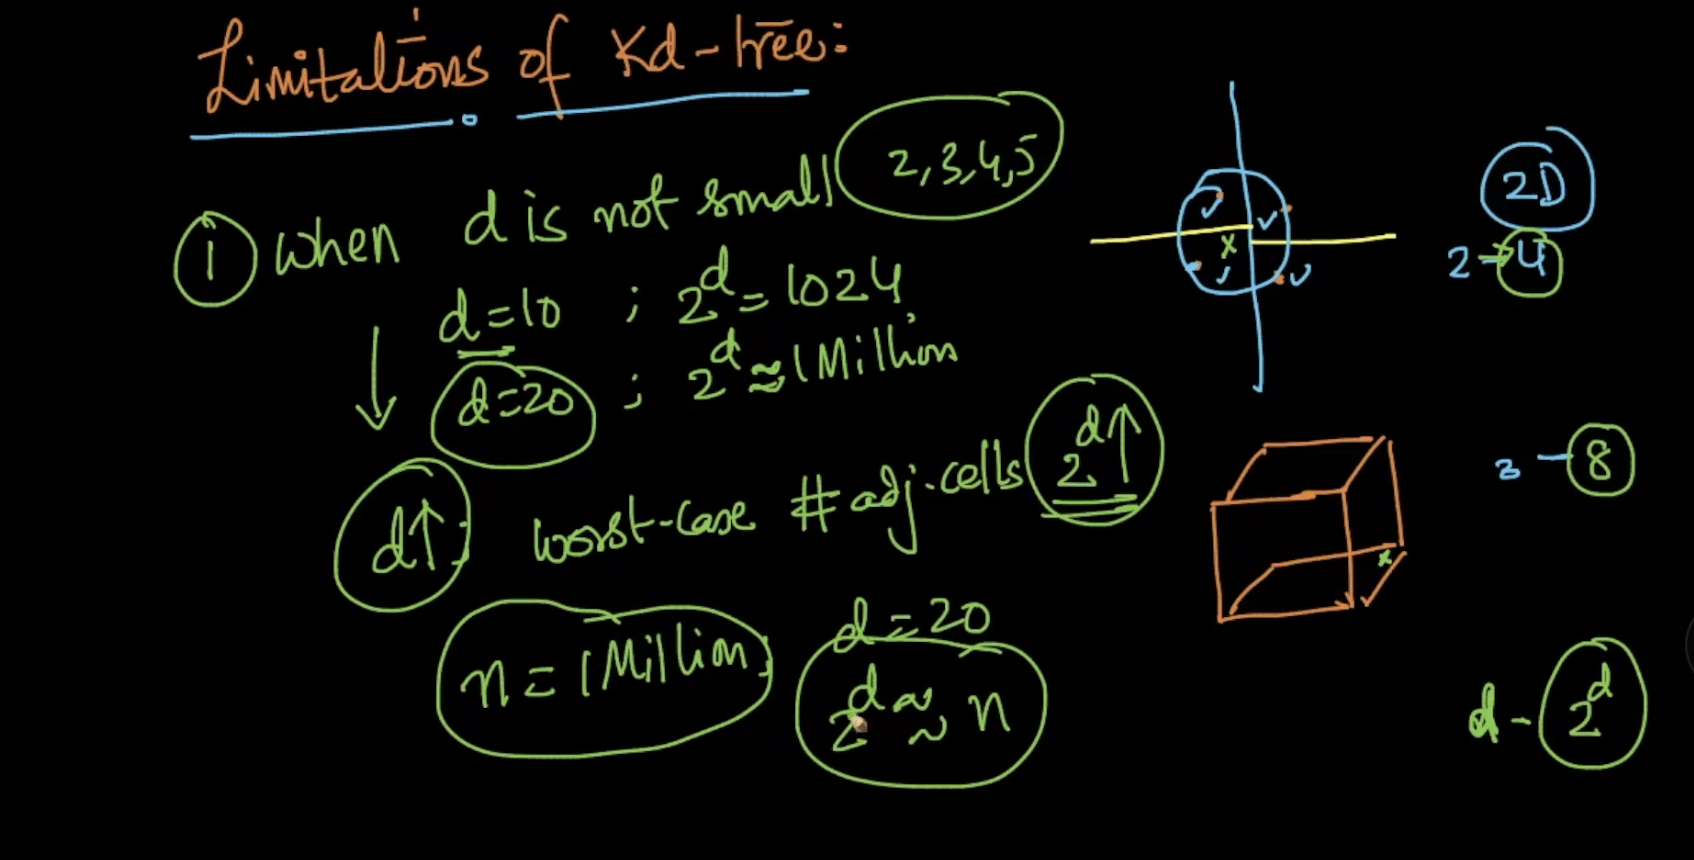 Limitations of Kd-tree:
① When d is not small 2,3,4,5
d=10 ; 2^d = 1024
d=20 ; 2^d ≈ 1 Million
d↑: worst-case # adj-cells 2^d ↑
n = 1 Million; d = 20
2^d ≈ n
x
2D
2 → 4
x
3 - 8
d - 2^d